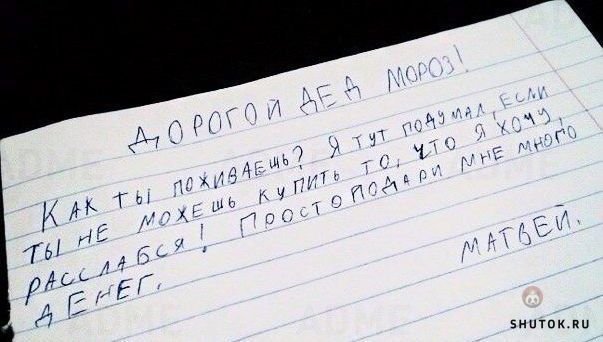 ДОРОГОЙ ДЕД МОРОЗ!
КАК ТЫ ПОЖИВАЕШЬ? Я ТУТ ПОДУМАЛ, ЕСЛИ
ТЫ НЕ МОЖЕШЬ КУПИТЬ ТО, ЧТО Я ХОЧУ,
РАССЛАБСЯ! ПРОСТО ПОДАРИ МНЕ МНОГО
ДЕНЕГ.
МАТВЕЙ.
SHUTOK.RU